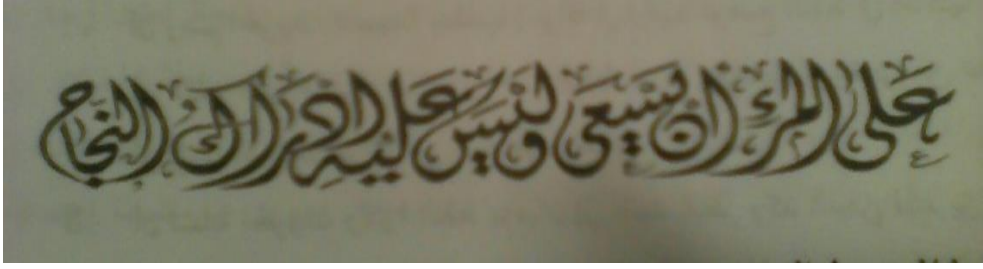 على المرء ان يسعى وليس عليه ادراك النجاح